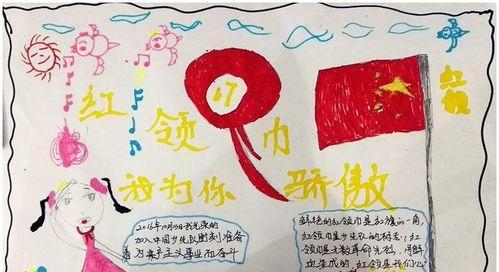 红领巾
17
我为你骄傲
加入中国少先队时刻准备
着为共产主义事业而奋斗
鲜艳的红领巾是红旗的一角
红领巾是少先队的标志,红
领巾是无数革命先烈,用鲜
血染成的,红领巾是我们公